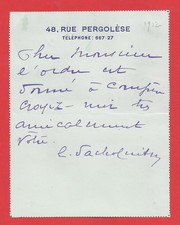 48, RUE PERGOLÈSE
TÉLÉPHONE : 667 27
Cher Monsieur
l'ordre est
donné à
Croyez-moi très
amicalement
vôtre.
Sacha Guitry